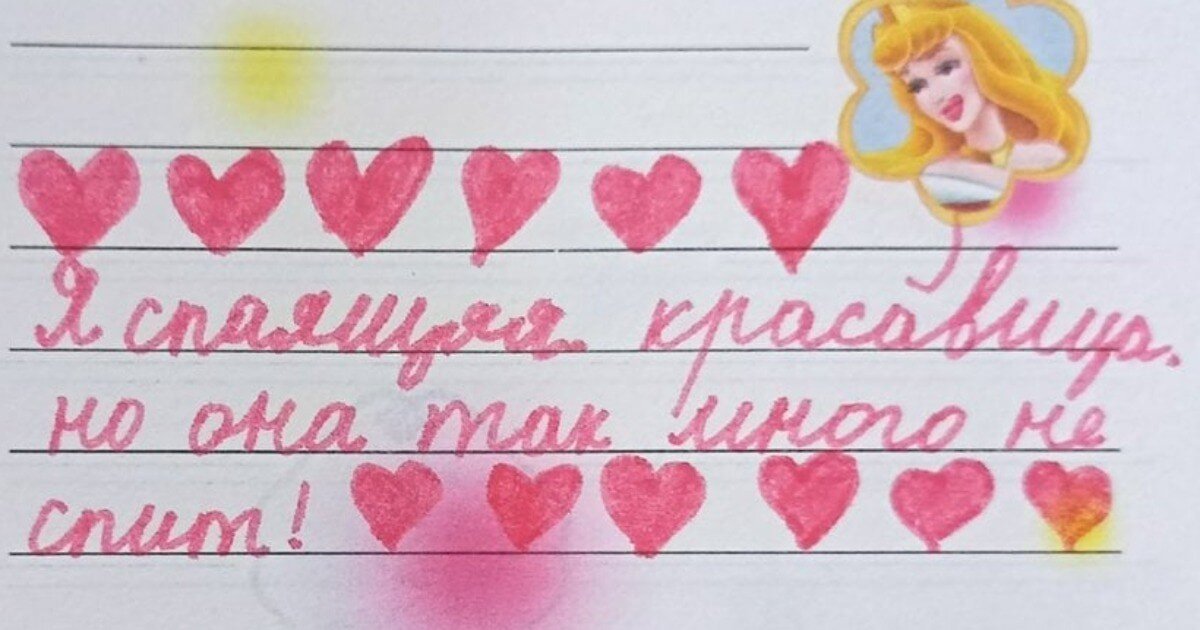 Я спаящяя красавица.
но она так много не
спит!